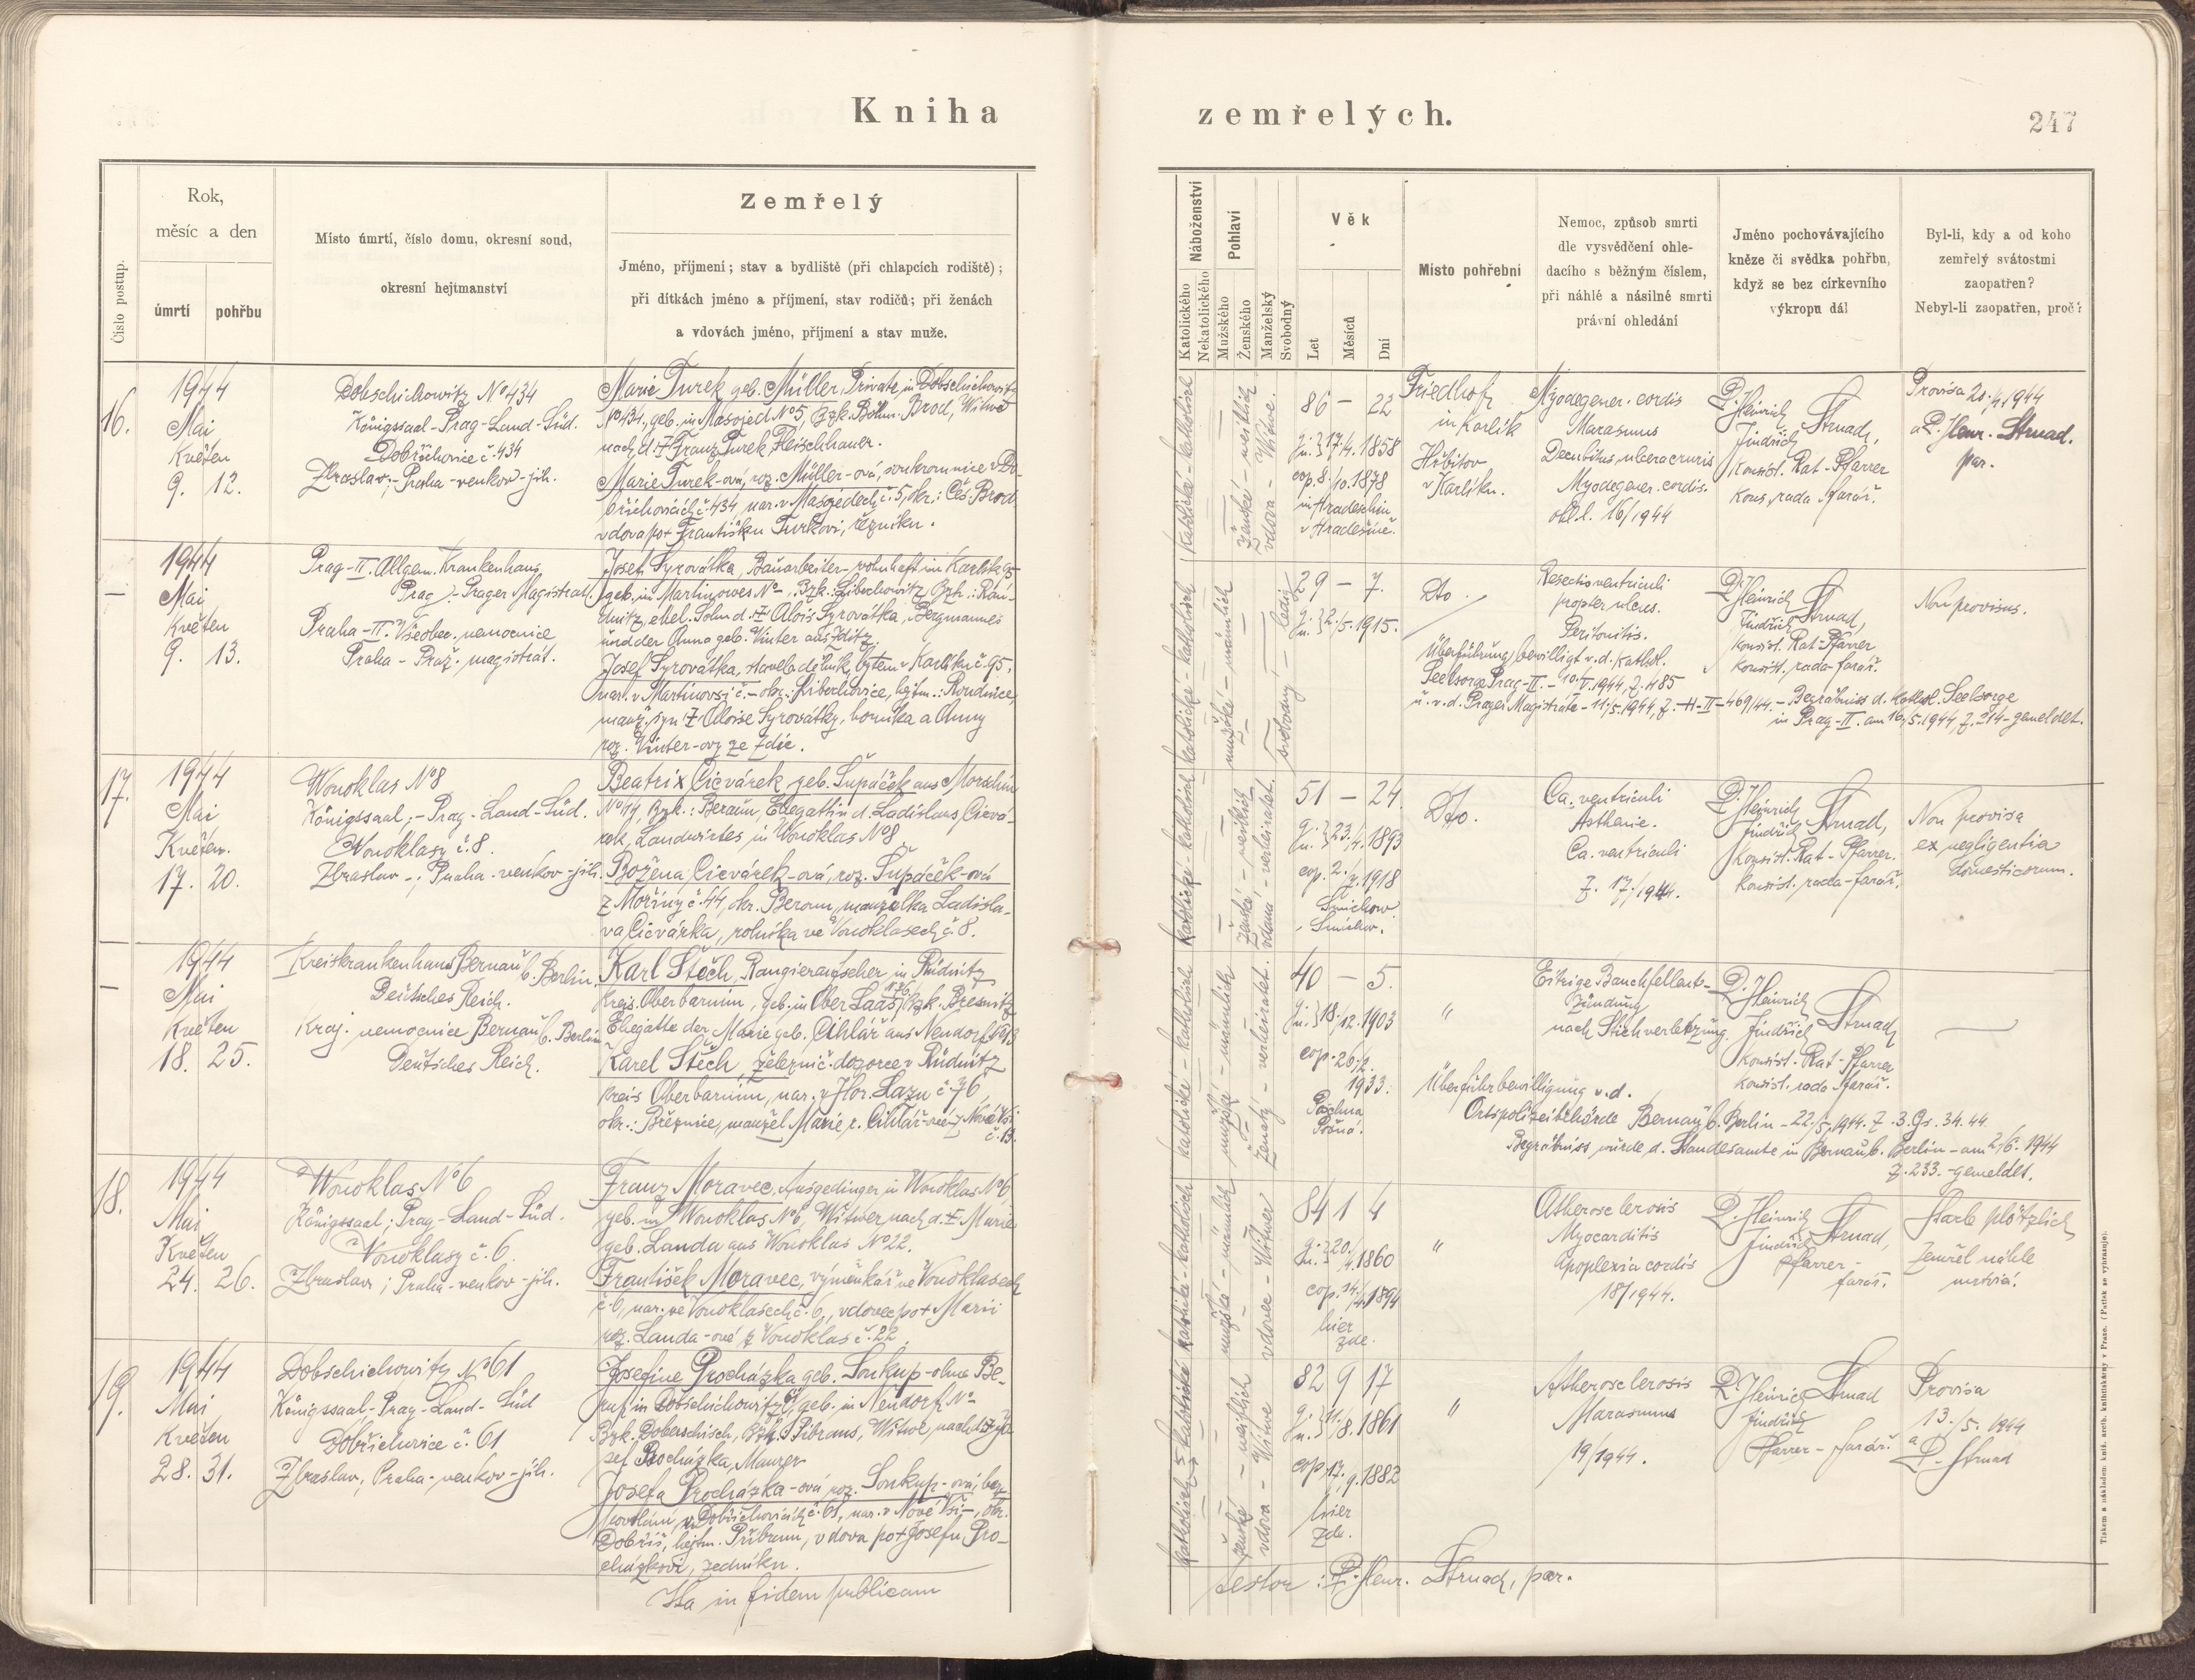 Kniha
zemřelých.
247
Číslo postup.
Rok,
měsíc a den
úmrtí
pohřbu
Místo úmrtí, číslo domu, okresní soud,
okresní hejtmanství
Zemřelý
Jméno, příjmení; stav a bydliště (při chlapcích rodiště);
při dítkách jméno a příjmení, stav rodičů; při ženách
a vdovách jméno, příjmení a stav muže.
Náboženství
Katolického
Nekatolického
Pohlaví
Mužského
Ženského
Manželský
Svobodný
Věk
Let
Měsíců
Dní
Místo pohřební
Nemoc, způsob smrti
dle vysvědčení ohle-
dacího s běžným číslem,
při náhlé a násilné smrti
právní ohledání
Jméno pochovávajícího
kněze či svědka pohřbu,
když se bez církevního
výkropu dál
Byl-li, kdy a od koho
zemřelý svátostmi
zaopatřen?
Nebyl-li zaopatřen, proč?
16.
1944
Mai
Květen
9. 12.
Dobschichowitz No 434
Königssaal-Prag-Land-Süd.
Dobřichovice č. 434
Zbraslav;-Praha-venkov-jih.
Marie Turek geb. Müller, Private in Dobschichowitz
No 434, geb. in Masojed No 5, Bzk. Böhm. Brod, Witwe
nach d. † Franz Turek Fleischhauer.
Marie Turek-ová, roz. Müller-ová, soukromnice v Do-
břichovicích č. 434, nar. v Masojedech č. 5, okr.: Čes. Brod
vdova po † Františku Turkovi, řezníku.
katolická - katholisch
ženské - weiblich
vdova - Witwe.
86 - 22
g. n. } 17./4. 1858
cop. 8./10. 1878
in Hradeschin
v Hradešíně.
Friedhof
in Karlík
Hřbitov
v Karlíku.
Myodegener. cordis
Marasmus
Decubitus, ulcera cruris
Myodegener. cordis.
ohl. l. 16/1944
P. Heinrich
Jindřich Strnad,
Konsist. Rat-Pfarrer
Kons. rada farář.
Provisa 20./4. 1944
a P. Henr. Strnad.
par.
-
1944
Mai
Květen
9. 13.
Prag-II. Allgem. Krankenhaus
Prag;-Prager Magistrat.
Praha-II. Všeobec. nemocnice
Praha-Praž. magistrát.
Josef Syrovátka, Bauarbeiter-wohnhaft in Karlík 95
geb. in Martinowes No -, Bzk.: Libochowitz, Bzh.: Rau-
dnitz, ehel. Sohn d. † Alois Syrovátka, Bergmannes
und der Anna geb. Winter aus Zditz.
Josef Syrovátka, staveb. dělník, bytem v Karlíku č. 95,
nar. v Martinovsi č. - okr.: Libochovice, hejtm.: Roudnice,
manž. syn † Aloise Syrovátky, horníka a Anny
roz. Vinter-ovy ze Zdic.
katolické - katholisch
mužské - männlich
svobodný - ledig
29 - 7.
g. n. } 2./5. 1915.
Dto.
Resectio ventriculi
propter ulcus.
Peritonitis.
P. Heinrich
Jindřich Strnad,
Konsist. Rat-Pfarrer
Konsist. rada-farář.
Non provisus.
Überführung bewilligt v. d. kathol.
Seelsorge Prag-II.-10./V. 1944, Z. 485
u. v. d. Prager Magistrate-11./5. 1944, Z.-H-II-469/44.-Begräbniss d. kathol. Seelsorge
in Prag-II. am 16./5. 1944, Z. 314-gemeldet.
17.
1944
Mai
Květen.
17. 20.
Wonoklas No 8
Königssaal;-Prag-Land-Süd.
Vonoklasy č. 8.
Zbraslav-; Praha-venkov-jih.
Beatrix Cicvárek geb. Šupáček aus Morschin
No 44, Bzk.: Beraun, Ehegattin d. Ladislaus Cicvá-
rek, Landwirtes in Wonoklas No 8
Božena Cicvárek-ová, roz. Šupáček-ová
z Mořiny č. 44, okr. Beroun, manželka Ladisla-
va Cicvárka, rolníka ve Vonoklasech č. 8.
katolické - katholisch
ženské - weiblich
vdaná - verheiratet.
51 - 24.
g. n. } 23./4. 1893
cop. 2./7. 1918
Smichow
Smíchov.
Dto.
Ca. ventriculi
Asthenie.
Ca. ventriculi
Z. 17./1944.
P. Heinrich
Jindřich Strnad,
Konsist. Rat-Pfarrer.
Konsist. rada-farář.
Non provisa
ex negligentia
domesticorum.
-
1944
Mai
Květen
18. 25.
Kreiskrankenhaus Bernau b. Berlin.
Deutsches Reich.
Kraj. nemocnice Bernau b. Berlin
Deutsches Reich.
Karl Štěch, Rangieraufseher in Rüdnitz
Kreis Oberbarnim, geb. in Ober Laas No 76, Bzk. Bresnitz
Ehegatte der Marie geb. Cihlář aus Neudorf No 13
Karel Štěch, železnič. dozorce v Rüdnitz
kreis Oberbarnim, nar. v Hor. Lazu č. 76,
okr.: Březnice, manžel Marie r. Cihlář-ové z Nové Vsi
č. 13.
katolické - katholisch
mužské - männlich
ženatý - verheiratet.
40 - 5.
g. n. } 18./12. 1903
cop. 26./2.
1933.
"
Eitrige Bauchfellent-
zündung
nach Stichverletzung.
P. Heinrich
Jindřich Strnad
Konsist. Rat-Pfarrer
Konsist. rada farář.
Überführbewilligung v. d.
Ortspolizeibehörde Bernau b. Berlin-22./5. 1944. Z. 3. Gs. 34. 44.
Begräbniss wurde d. Standesamte in Bernau b. Berlin-am 2./6. 1944
Z. 233.-gemeldet.
18.
1944
Mai
Květen
24. 26.
Wonoklas No 6
Königssaal; Prag-Land-Süd.
Vonoklasy č. 6.
Zbraslav; Praha-venkov-jih.
Franz Moravec, Ausgedinger in Wonoklas No 6,
geb. in Wonoklas No 6, Witwer nach d. † Marie
geb. Landa aus Wonoklas No 22.
František Moravec, výměnkář ve Vonoklasech
č. 6, nar. ve Vonoklasech č. 6, vdovec po † Marii
roz. Landa-ové z Vonoklas č. 22.
katolické - katholisch
mužské - männlich
vdovec - Witwer
84 1 4
g. n. } 20./4. 1860
cop. 24./4. 1894
hier
zde.
"
Atherosclerosis
Myocarditis
Apoplexia cordis
18/1944.
P. Heinrich
Jindřich Strnad,
Pfarrer-
farář.
Starb plötzlich
Zemřel náhle
mrtvicí.
19.
1944
Mai
Květen
28. 31.
Dobschichowitz No 61
Königssaal-Prag-Land-Süd
Dobřichovice č. 61
Zbraslav; Praha-venkov-jih.
Josefine Procházka geb. Soukup-ohne Be-
ruf in Dobschichowitz 61, geb. in Neudorf No -
Bzk. Doberschisch, Bzh. Pibrans, Witwe, nach d. † Jo-
sef Procházka, Maurer
Josefa Procházka-ová roz. Soukup-ová, bez
povolání, v Dobřichovicích č. 61, nar. v Nové Vsi-, okr.
Dobříš, hejtm. Příbram, vdova po † Josefu Pro-
cházkovi, zedníku.
katholisch - katolické
ženské - weiblich
vdova - Witwe
82 9 17
g. n. } 11./8. 1861
cop. 17./9. 1882
hier
zde.
"
Atherosclerosis
Marasmus
19/1944.
P. Heinrich Strnad
Jindřich
Pfarrer-farář.
Provisa
13./5. 1944
a
P. Strnad
Ita in fidem publicam
testor: P. Henr. Strnad, par.
Tiskem a nákladem kníž. arcib. knihtiskárny v Praze. (Patisk se vyhrazuje).